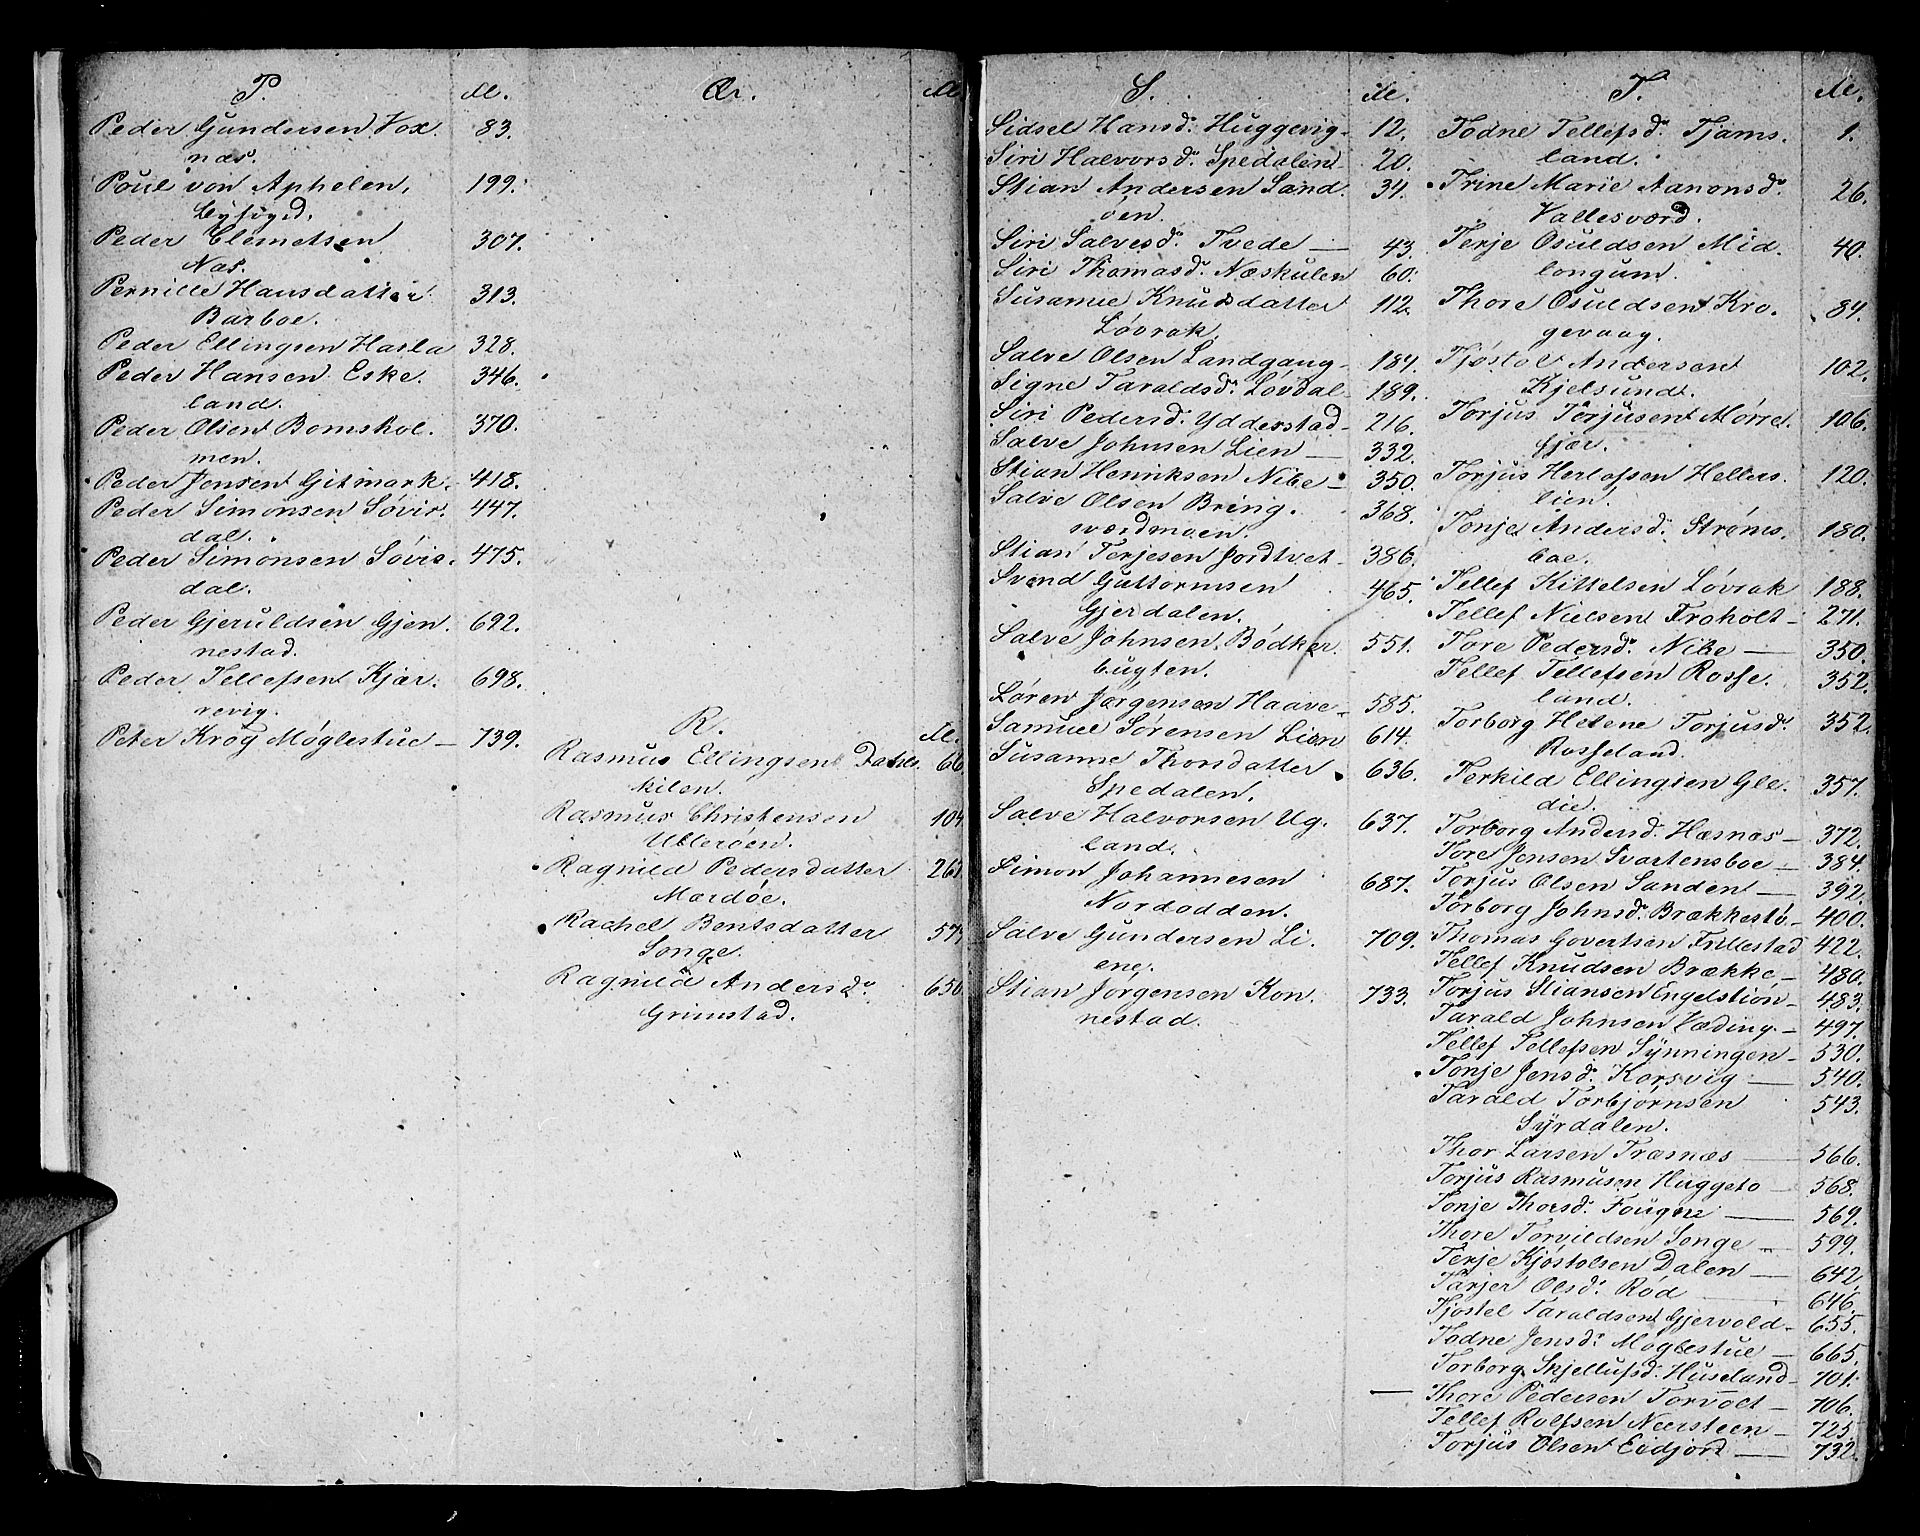 P. №.
Peder Gundersen Vox 83.
næs.
Poul von Aphelen, 199.
Byfogd.
Peder Clemetsen 307.
Næs.
Pernille Hansdatter 313.
Barboe.
Peder Ellingsen Hasla 328.
Peder Hansen Eske. 346.
land.
Peder Olsen Bomshol. 370.
men.
Peder Jensen Gitmark. 418.
Peder Simonsen Søvir. 447.
dal.
Peder Simonsen Søvir. 475.
dal.
Peder Gjeruldsen Gjen 692.
nestad.
Peder Tellefsen Kjær. 698.
revig.
Peter Krog Møglestue — 739.
Qv. №
R. №.
Rasmus Ellingsen Dahls. 66
kilen.
Rasmus Christensen 104
Ullerøen.
Ragnild Pedersdatter 261
Mærdøe.
Rachel Bentsdatter 57
Songe.
Ragnild Andersd. 650
Grimstad.
S. №.
Sidsel Hansd. Huggevig 12.
Siri Halvorsd. Spedalen 20.
Stian Andersen Sand 34.
öen.
Siri Salvesd. Tvede — 43.
Siri Thomasd. Næskilen 60.
Susanne Knudsdatter 112.
Løvrak.
Salve Olsen Landgang 184.
Signe Taraldsd. Løvdal 189.
Siri Pedersd. Ydderstad 216.
Salve Johnsen Lien — 332.
Stian Henriksen Nibe — 350.
Salve Olsen Bring. 368.
sværdmoen.
Stian Terjesen Jordtvet 386.
Svend Guttormsen 465.
Gjerdalen.
Salve Johnsen Bödker 551.
bugten.
Sören Jørgensen Haave 585.
Samuel Sørensen Lien 614.
Susanne Thorsdatter 636.
Spedalen.
Salve Halvorsen Ug. 637.
land.
Simon Johannesen 687.
Nordodden.
Salve Gundersen Li. 709.
ene.
Stian Jörgensen Kon 733.
nestad.
T. №.
Todne Tellefsd. Tjams 1.
land.
Trine Marie Aanonsd. 26.
Vallesværd.
Terje Osuldsen Mid 40.
longum.
Thore Osuldsen Kro. 84.
gevaag.
Tjøstol Andersen 102.
Kjelsund.
Torjus Torjusen Mørre 106.
fjær.
Torjus Herlofsen Hellers. 120.
lien.
Tonje Andersd. Strøms. 180.
boe.
Tellef Kittelsen Løvrak 188.
Tellef Nielsen Froholt — 271.
Tore Pedersd. Nibe — 350.
Tellef Tellefsen Rosse. 352.
land.
Torborg Helene Torjusd. 352.
Rosseland.
Terkild Ellingsen Gle. 357.
die.
Torborg Andersd. Hæsnæs — 372.
Tore Jensen Svartensboe — 384.
Torjus Olsen Sanden — 392.
Torborg Johnsd. Brækkestö. 400.
Thomas Govertsen Fillestad 422.
Tellef Knudsen Brække — 480.
Torjus Stiansen Engelstiön — 483.
Tarald Johnsen Væding — 497.
Tellef Tellefsen Synningen — 530.
Tonje Jensd. Korsvig — 540.
Tarald Torbjørnsen 543.
Syrdalen.
Thor Larsen Træsnæs — 566.
Torjus Rasmusen Huggeto — 568.
Tonje Thorsd. Fougne — 569.
Thore Torvildsen Songe — 599.
Terje Kjøstolsen Dalen — 642.
Tarjer Olsd. Rød 646.
Tjøstel Taraldsen Gjervold — 655.
Todne Jensd. Møglestue — 665.
Torborg Skjellufsd. Huseland — 701.
Thore Pedersen Torvoet — 706.
Tellef Rolfsen Neersteen — 725.
Torjus Olsen Eidjord — 732.